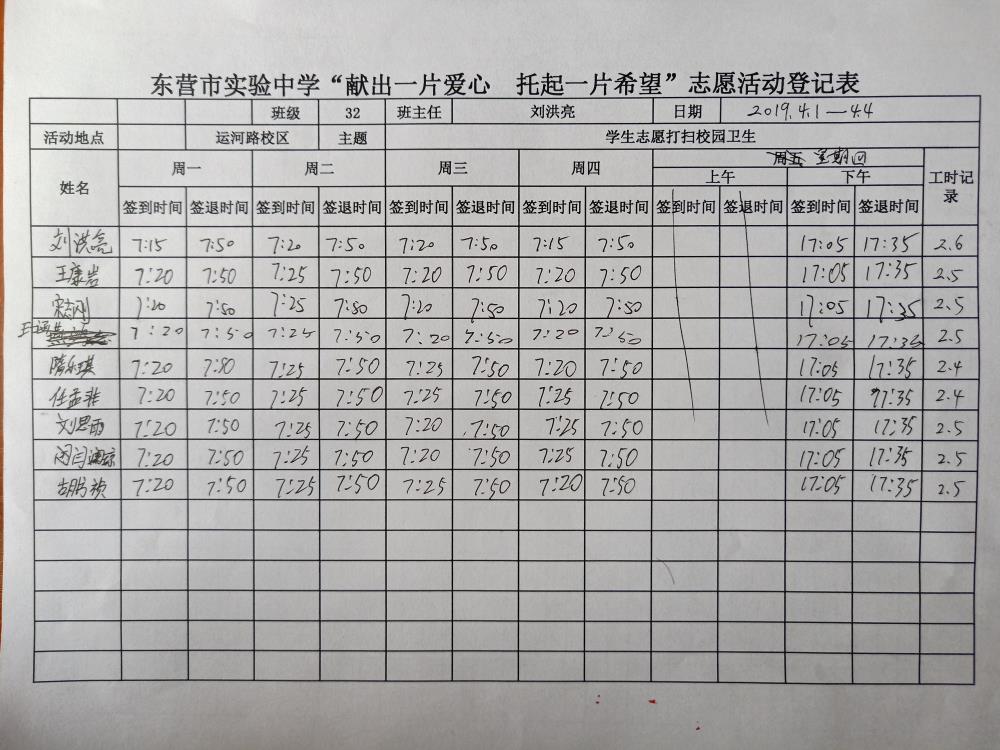 东营市实验中学“献出一片爱心 托起一片希望”志愿活动登记表
班级 32 班主任 刘洪亮 日期 2019.4.1—4.4
活动地点 运河路校区 主题 学生志愿打扫校园卫生
姓名 周一 周二 周三 周四 周五 星期四 工时记录
上午 下午
签到时间 签退时间 签到时间 签退时间 签到时间 签退时间 签到时间 签退时间 签到时间 签退时间 签到时间 签退时间
刘洪亮 7:15 7:50 7:20 7:50 7:20 7:50 7:15 7:50 17:05 17:35 2.6
王康岩 7:20 7:50 7:25 7:50 7:20 7:50 7:20 7:50 17:05 17:35 2.5
7:20 7:50 7:25 7:50 7:20 7:50 7:20 7:50 17:05 17:35 2.5
7:20 7:50 7:25 7:50 7:20 7:50 7:20 7:50 17:05 17:35 2.5
隋乐琪 7:20 7:50 7:25 7:50 7:25 7:50 7:20 7:50 17:05 17:35 2.4
任孟非 7:20 7:50 7:25 7:50 7:25 7:50 7:25 7:50 17:05 17:35 2.4
刘思雨 7:20 7:50 7:25 7:50 7:20 7:50 7:25 7:50 17:05 17:35 2.5
7:20 7:50 7:25 7:50 7:20 7:50 7:25 7:50 17:05 17:35 2.5
7:20 7:50 7:25 7:50 7:25 7:50 7:20 7:50 17:05 17:35 2.5